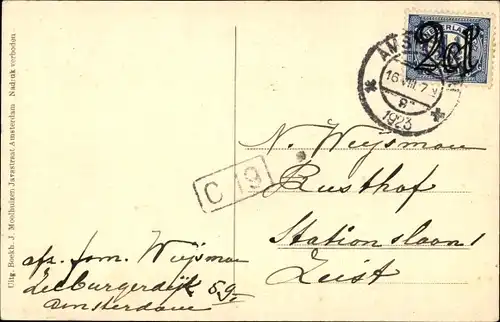 Uitg. Boekh. J. Moolhuizen, Javastraat, Amsterdam   Nadruk verboden.
NEDERLAND
2ct
16 VIII 7
1923
C 19
N. Weijsman
Rusthof
Stationslaan 1
Zeist
afz. fam. Weijsman
Zeeburgerdijk 59
Amsterdam